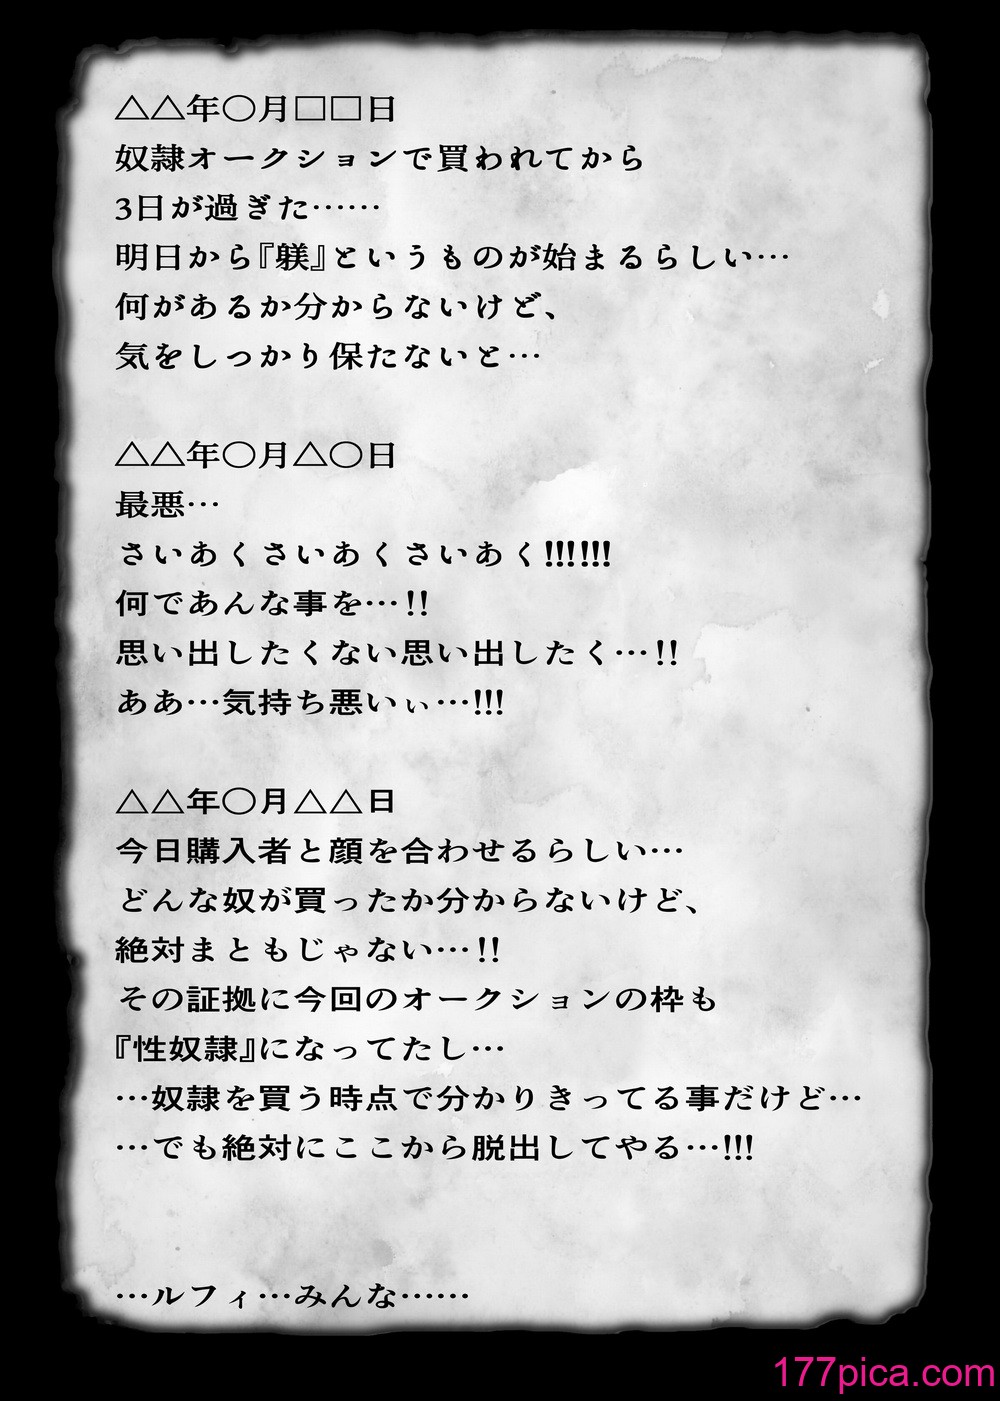 △△年〇月□□日
奴隷オークションで買われてから
3日が過ぎた……
明日から『躾』というものが始まるらしい…
何があるか分からないけど、
気をしっかり保たないと…
△△年〇月△〇日
最悪…
さいあくさいあくさいあく!!!!!!
何であんな事を…!!
思い出したくない思い出したく…!!
ああ…気持ち悪いぃ…!!!
△△年〇月△△日
今日購入者と顔を合わせるらしい…
どんな奴が買ったか分からないけど、
絶対まともじゃない…!!
その証拠に今回のオークションの枠も
『性奴隷』になってたし…
…奴隷を買う時点で分かりきってる事だけど…
…でも絶対にここから脱出してやる…!!!
…ルフィ…みんな……
177pica.com